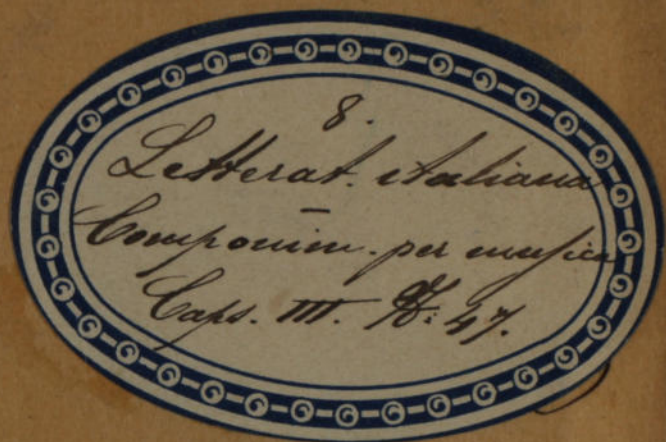 8.
Letterat. italiana
–
Componim. per musica
Caps. III. N: 47.